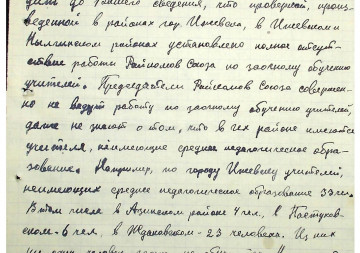 дит до Вашего сведения, что проверкой, произ-
веденной в районах гор. Ижевска, в Ижевском и
Нылгинском районах установлено полное отсут-
ствие работы Райкомов Союза по заочному обучению
учителей. Председатели Райкомов Союза совершен-
но не ведут работу по заочному обучению учителей,
даже не знают о том, что в тех районе имеются
учителя, не имеющие среднее педагогическое обра-
зование. Например, по городу Ижевску учителей,
неимеющих среднее педагогическое образование 33 чел.
В том числе в Азинском районе 4 чел, в Пастухов-
ском - 6 чел, в Ждановском - 23 человека. Из них